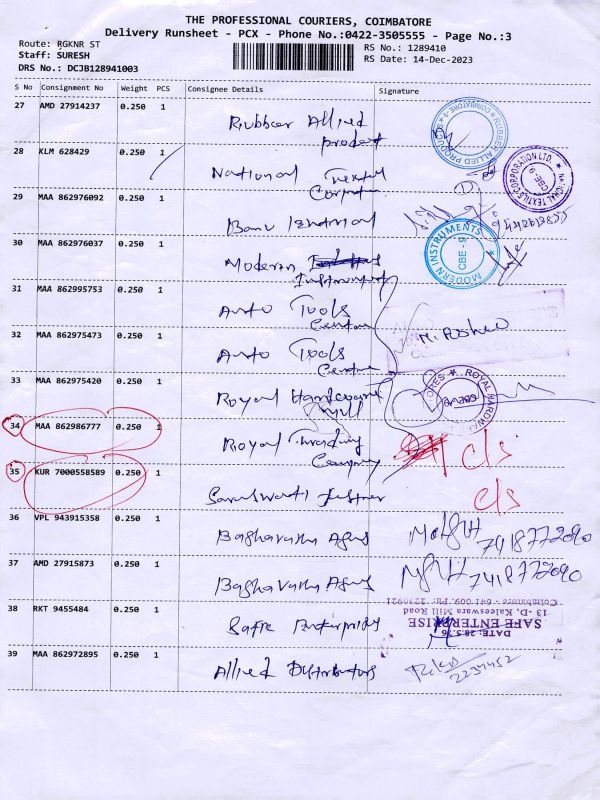 THE PROFESSIONAL COURIERS, COIMBATORE
Delivery Runsheet - PCX - Phone No.:0422-3505555 - Page No.:3
Route: RGKNR ST
RS No.: 1289410
Staff: SURESH
RS Date: 14-Dec-2023
DRS No.: DCJB128941003
S No Consignment No Weight PCS Consignee Details Signature
27 AMD 27914237 0.250 1
Rubber Allied
RUBBER ALLIED PRODUCTS
COIMBATORE-9
28 KLM 628429 0.250 1
National Textil
NATIONAL TEXTILES CORPORATION LTD.
CBE-9
29 MAA 862976092 0.250 1
30 MAA 862976037 0.250 1
Modern
MODERN INSTRUMENTS
CBE-9
31 MAA 862995753 0.250 1
Auto Tools
Centre
32 MAA 862975473 0.250 1
Auto Tools
Centre
33 MAA 862975420 0.250 1
Royal
34 MAA 862986777 0.250 1
Royal Trading
Company
c/s
35 KUR 7000558589 0.250 1
c/s
36 VPL 943915358 0.250 1
7418772090
37 AMD 27915873 0.250 1
7418772090
38 RKT 9455484 0.250 1
Safe
SAFE ENTERPRISE
13, -D, Kaleeswara Mill Road
39 MAA 862972895 0.250 1
Allied Distributors
2234452